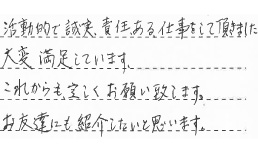 活動的で誠実、責任ある仕事をして頂きました
大変満足しています。
これからも宜しくお願い致します。
お友達にも紹介したいと思います。